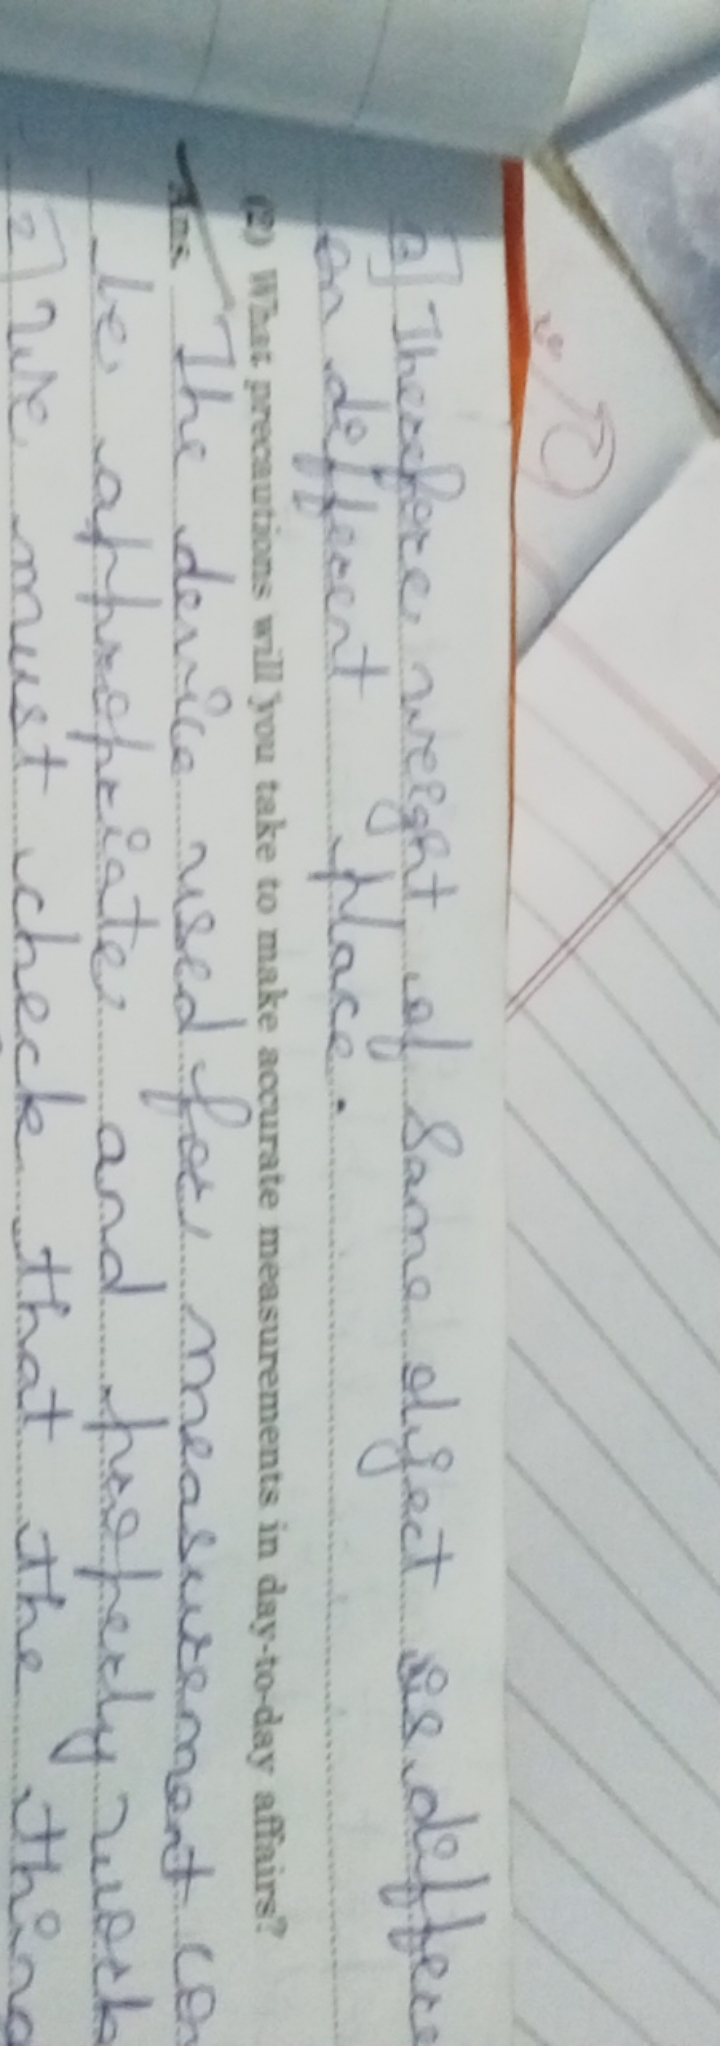 2] Therefore, weight of same object is differe
on different place.
(2) What precautions will you take to make accurate measurements in day-to-day affairs?
Ans. The device used for measurement
be appropriate and properly work
2] We must check that the thing